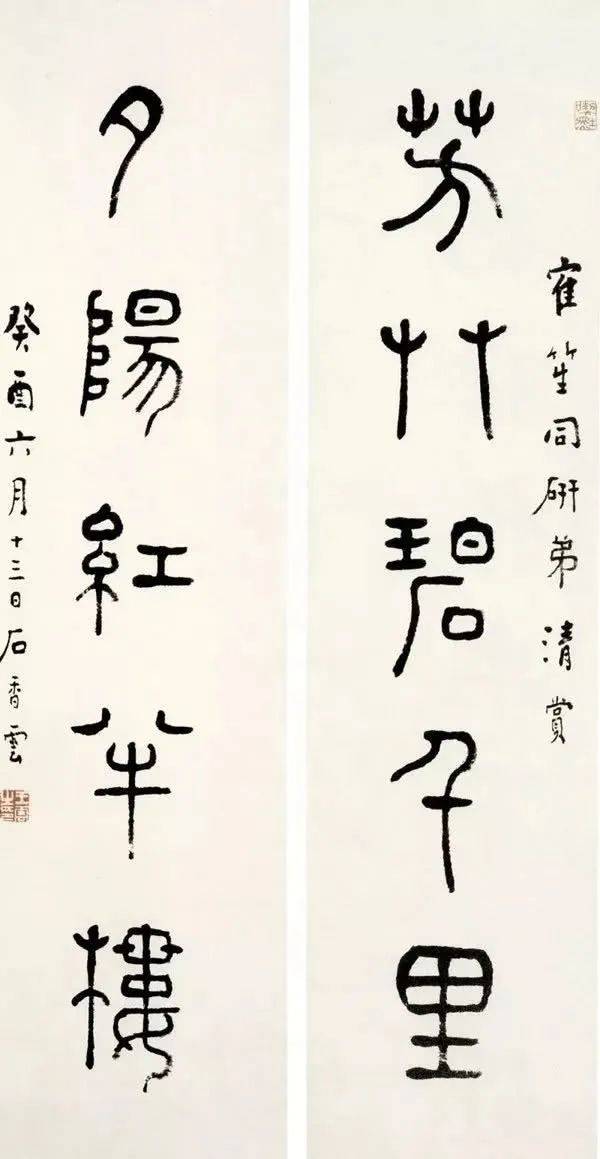 寉笙同研弟清賞
芳艸碧千里
夕陽紅半樓
癸酉六月十三日石香雲